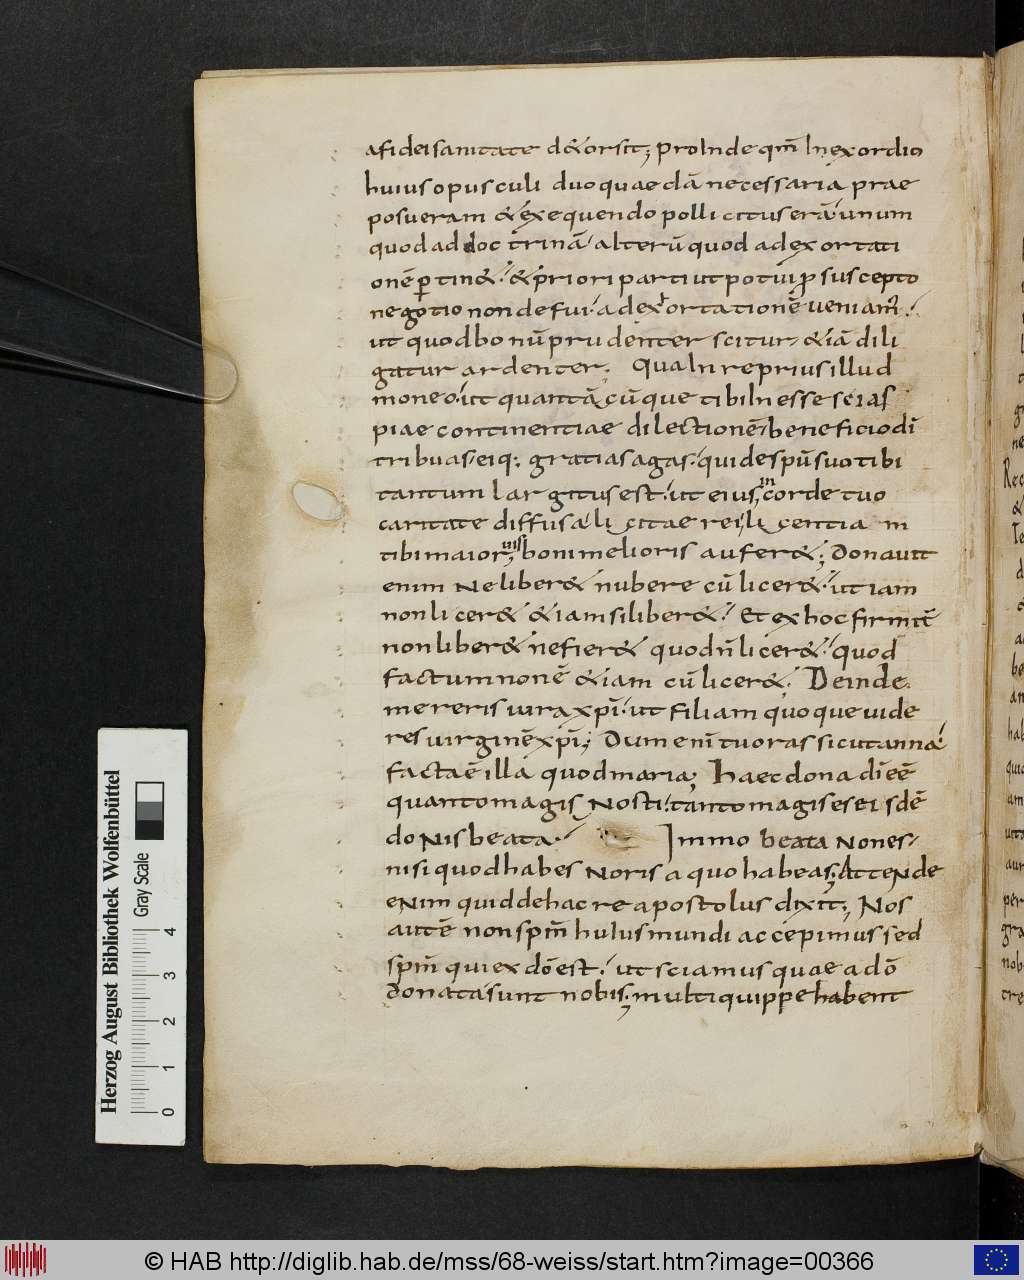 a fidei sanitate d&orsit; proInde qm̄ In exordio
huius opusculi duo quaedā necessaria prae
posueram & exequendo pollicitus erā unum
quod ad doctrinā alterū quod ad exortati
onē ꝑtin& & priori parti ut potui ꝓ suscepto
negotio non defui ad exhortationē veniam᷒
ut quod bonū prudenter scitur & iā dili
gatur ardenter. Qua In re prius illud
moneo ut quantācūque tibi Inesse scias
piae continentiae dilectionē beneficio dī
tribuas eiq; gratias agas qui de spū suo tibi
tantum largitus est ut eius in corde tuo
caritate diffusa licitae rei licentia m
tibi maioris boni melioris aufer&; Donavit
enim Ne liber& nubere cū licer& ut iam
non licer& & iam si liber& Et ex hoc firmi᷒tē
non liber& ne fier& quod n̄ licer& quod
factum non ē & iam cū licer&. Deinde
mereris uira xpī ut filiam quoque uide
res uirginē xpī; Dum enī tu oras sicut anna
facta ē illa quod maria; Haec dona dī eē
quanto magis Nosti tanto magis es eisdē
doNis beata. Immo beata Non es
nisi quod habes Noris a quo habeas; AtteNde
eNim quid de hac re apostolus dixit; Nos
autē non spm̄ huius mundi accepimus sed
spm̄ qui ex dō est ut sciamus quae a dō
donata sunt nobis; multi quippe habent
Herzog August Bibliothek Wolfenbüttel
Gray Scale
0 1 2 3 4
© HAB http://diglib.hab.de/mss/68-weiss/start.htm?image=00366